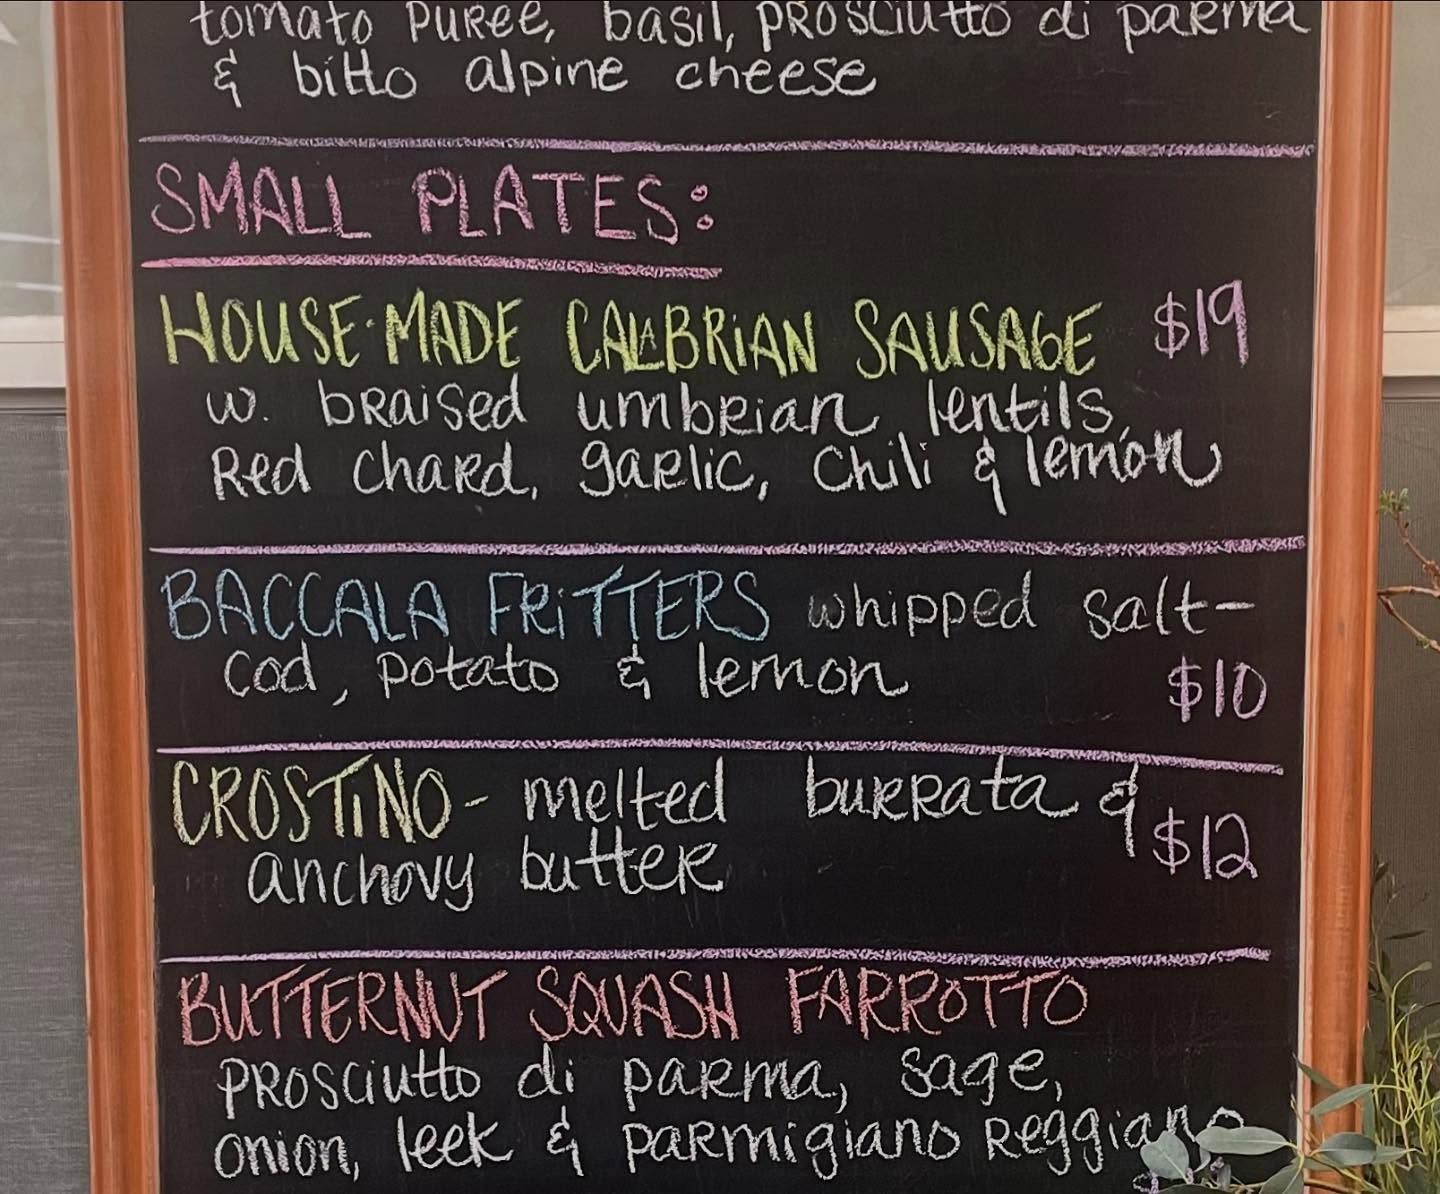 tomato puree, basil, prosciutto di parma
& bitto alpine cheese
SMALL PLATES:
HOUSE-MADE CALABRIAN SAUSAGE $19
w. braised umbrian lentils,
Red chard, garlic, chili & lemon
BACCALA FRITTERS whipped salt-
cod, potato & lemon $10
CROSTINO - melted burrata &
anchovy butter $12
BUTTERNUT SQUASH FARROTTO
prosciutto di parma, sage,
onion, leek & parmigiano Reggiano